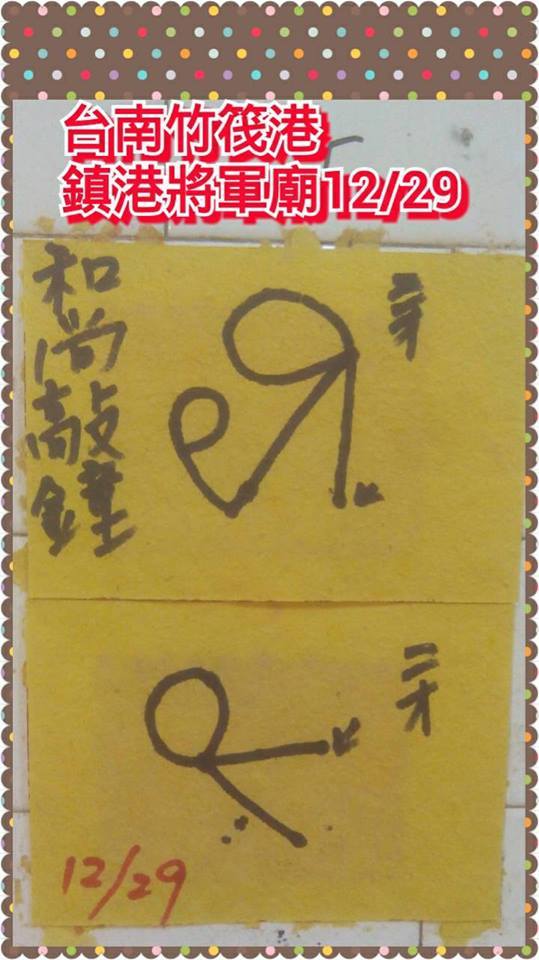 台南竹筏港
鎮港將軍廟12/29
和尚敲鐘
12/29